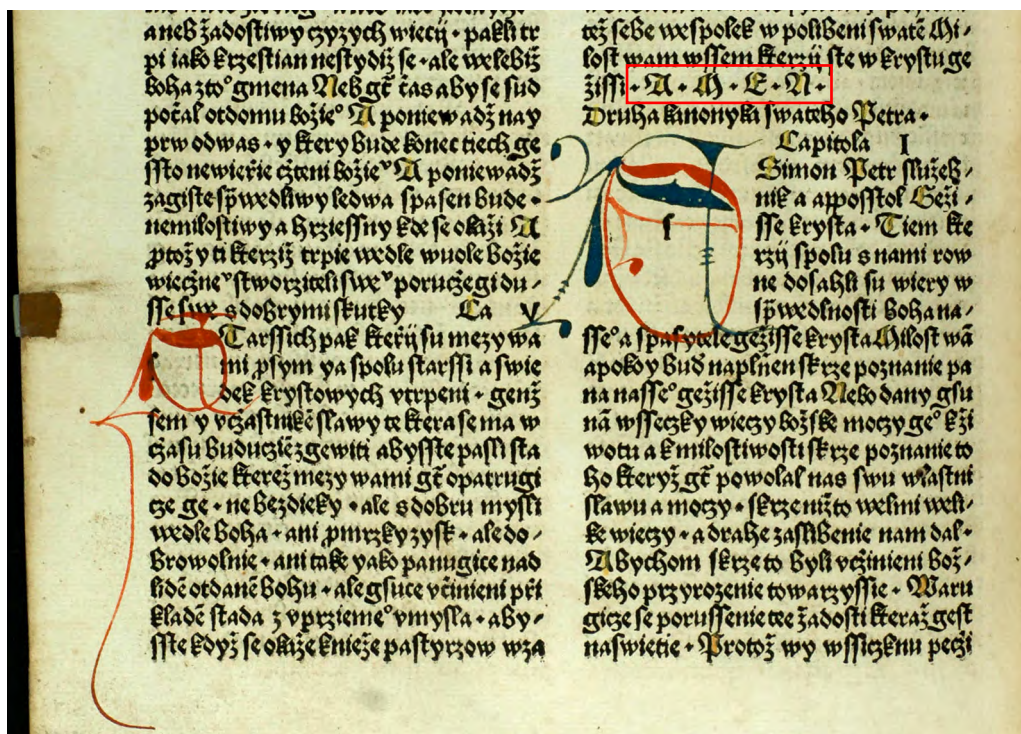 a neb žadostiwy czyzych wieczij • pakli tr
pi iako krzestian nestydiž se • ale welebiž
boha z to° gmena Neb gt̄ čas aby se sud
počal ot domu božie° A poniewadž nay
prw od was • y ktery bude konec tiech ge
ssto newierzie cžteni božie° A poniewadž
zagiste sp̄wedliwy ledwa spasen bude •
nemilostiwy a hrziessny kde se okaži A
protož y ti kterziž trpie wedle wuole božie
wieczne° stworziteli swe° poruczegi du-
sse swe s dobrymi skutky Ca V
Tarssich pak kterij su mezy wa
mi prsym ya spolu starssi a swie
dek krystowych vtrpeni • genž
sem y vcžastnikē slawy te ktera se ma w
cžasu buduczie zgewiti abysste pasli sta
do božie kterež mezy wami gt̄ opatrugi
cze ge • ne bezdieky • ale s dobru mysli
wedle boha • ani pro mrzky zysk • ale do-
browolnie • ani take yako panugice nad
lidē otdanē bohu • ale gsuce včinieni přI
kladē stada z vprzieme° vmysla • aby-
sste když se okaže knieže pastyrzow wza
tež sebe wespolek w polibeni swatē Mi-
lost wam wssem kterzij ste w krystu ge
žissi • A • M • E • N •
Druha kanonyka swateho Petra •
Capitola I
Simon Petr služeb-
nik a apposstol Geži-
sse krysta • Tiem kte
rzij spolu s nami row
ne dosahli su wiery w
sp̄wedlnosti boha na-
sse° a spasytele gežisse krysta Milost wā
a pokoy bud naplnen skrze poznanie pa
na nasse° gežisse krysta Nebo dany gsu
nā wsseczky wieczy božske moczy ge° k ži
wotu a k milostiwosti skrze poznanie to
ho kteryž gt̄ powolal nas swu wlastni
slawu a moczy • skrze nižto welmi weli-
ke wieczy • a drahe zaslibenie nam dal •
Abychom skrze to byli včinieni bož-
skeho przyrozenie towarzyssie • Waru
gicze se porussenie tee žadosti kteraž gest
na swietie • Protož wy wssiczknu peczi